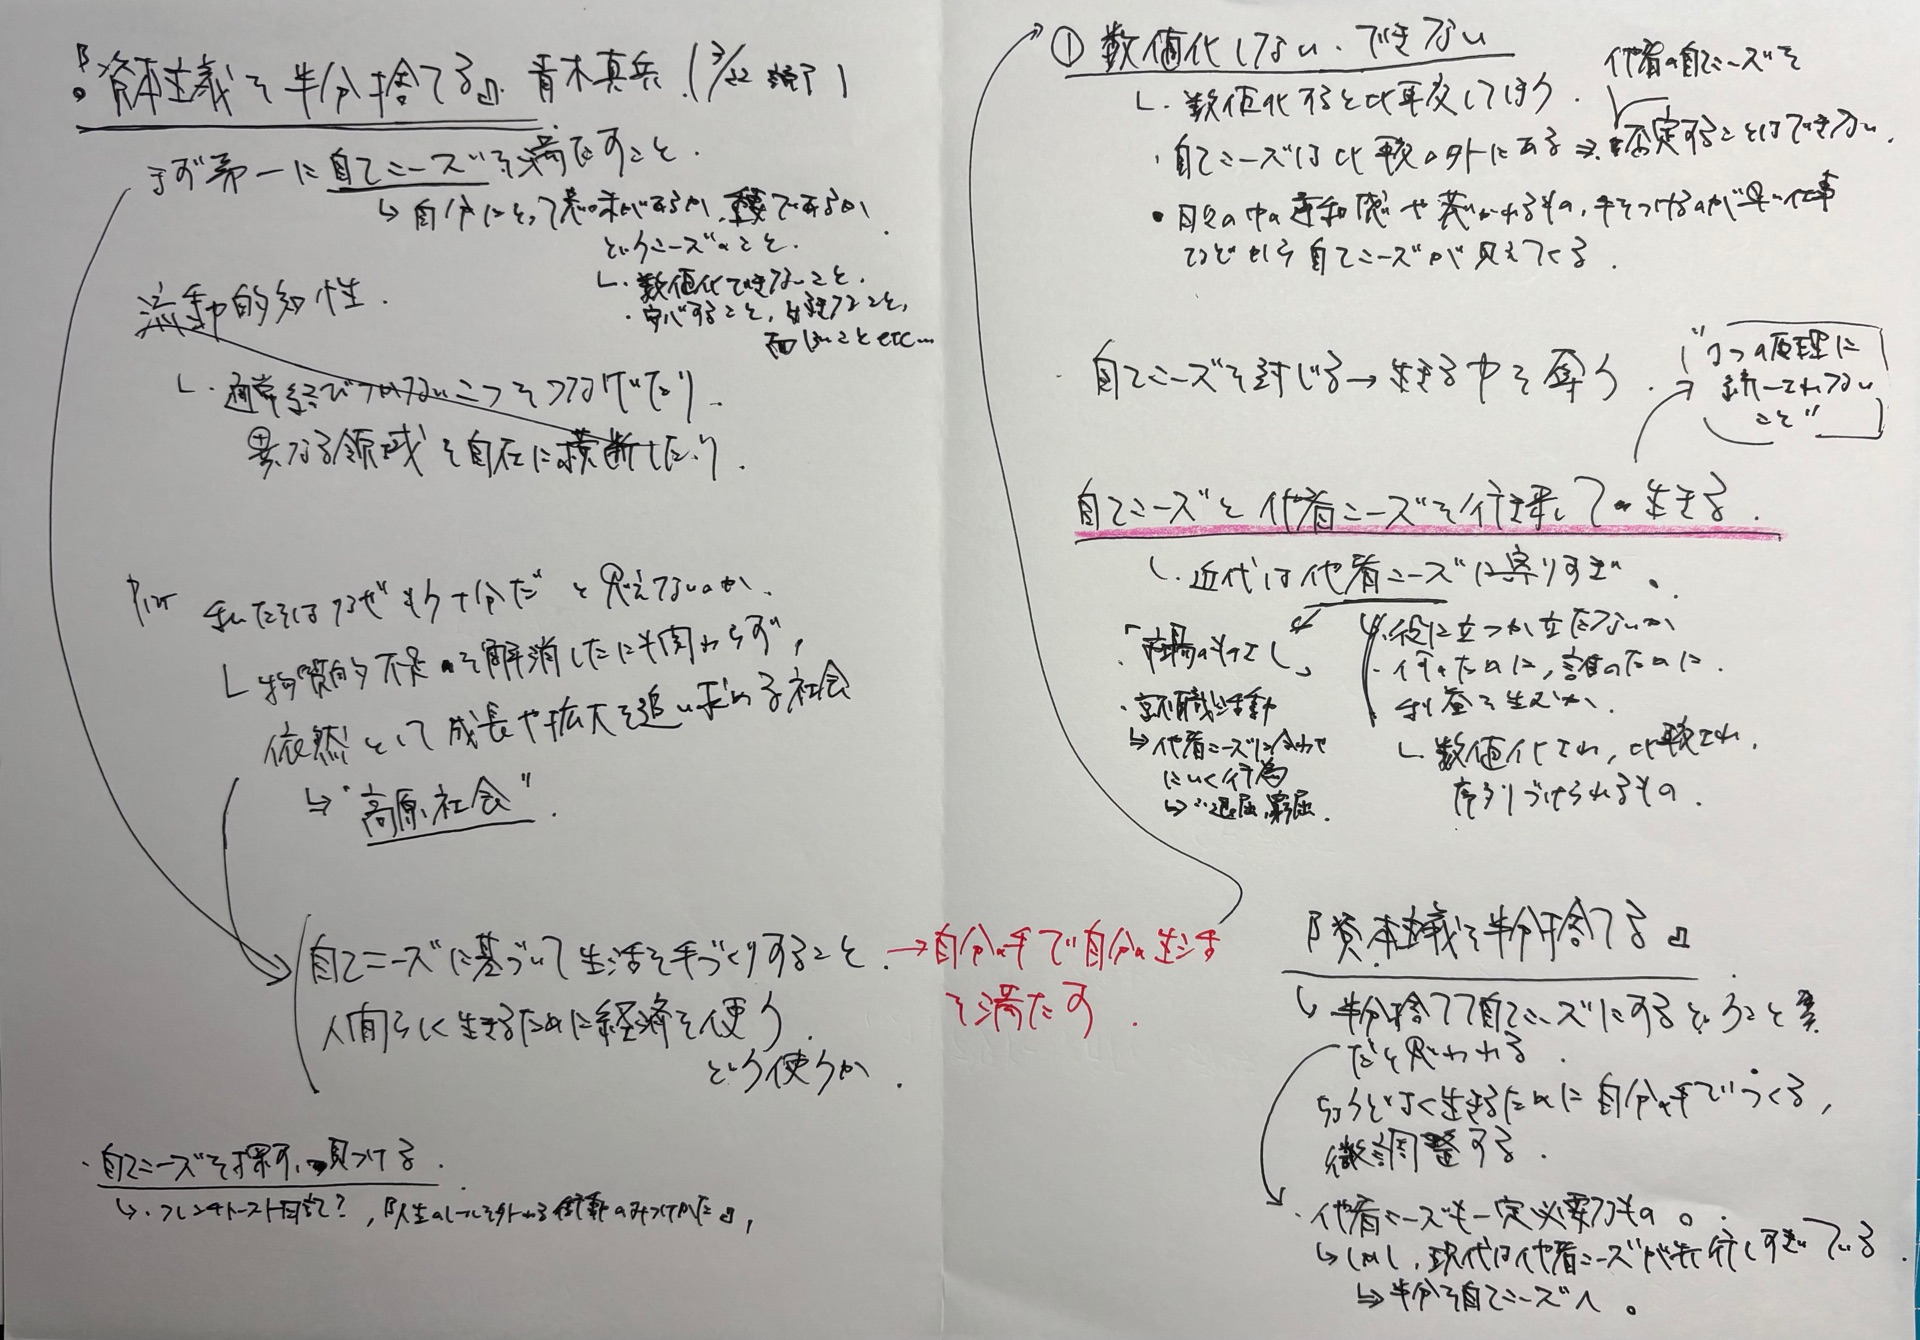 『資本主義を半分捨てる』青木真兵 (3/22 読了)
まず第一に自てニーズを満たすこと.
↳ 自分にとって意味があるか、重要であるか
というニーズのこと.
・数値化できないこと.
・安心すること, 好きなこと,
面白いこと etc…
流動的知性.
・通常結びつかない二つをつなげたり
異なる領域を自在に横断したり.
私たちはなぜ"もう十分だ"と思えないのか.
物質的不足を解消したにも関わらず,
依然として成長や拡大を追い求める社会
↳ "高原社会".
自てニーズに基づいて生活を手づくりすること.
人間らしく生きるために経済を使う.
どう使うか.
→自分の手で自分の生活
を満たす.
・自てニーズを探す, 見つける.
↳・フレンチトースト日記?, 『人生のレールを外れる衝動のみつけかた』,
① 数値化しない・できない
・数値化すると比較してしまう.
他者の自てニーズを
・自てニーズは比較の外にある ⇒ 否定することはできない.
・日々の中の違和感や惹かれるもの, 手をつけるのが早い仕事
などから自てニーズが見えてくる.
・自てニーズを封じる→生きる力を奪う.
"1つの原理に
統一されない
こと"
自てニーズと他者ニーズを行き来して生きる.
・近代は他者ニーズに寄りすぎ.
・「市場のものさし」
・就職活動
↳ 他者ニーズに合わせ
にいく行為
↳ 退屈, 窮屈.
・役に立つか立たないか
・何のために, 誰のために.
利益を生むか.
・数値化され, 比較され,
序列づけられるもの.
『資本主義を半分捨てる』
↳ 半分捨てて自てニーズにするということ
だと思われる.
ちょうどよく生きるために自分の手でつくる,
微調整する.
・他者ニーズも一定必要なもの.
↳ しかし, 現代は他者ニーズが先行しすぎている.
↳ 半分を自てニーズへ.